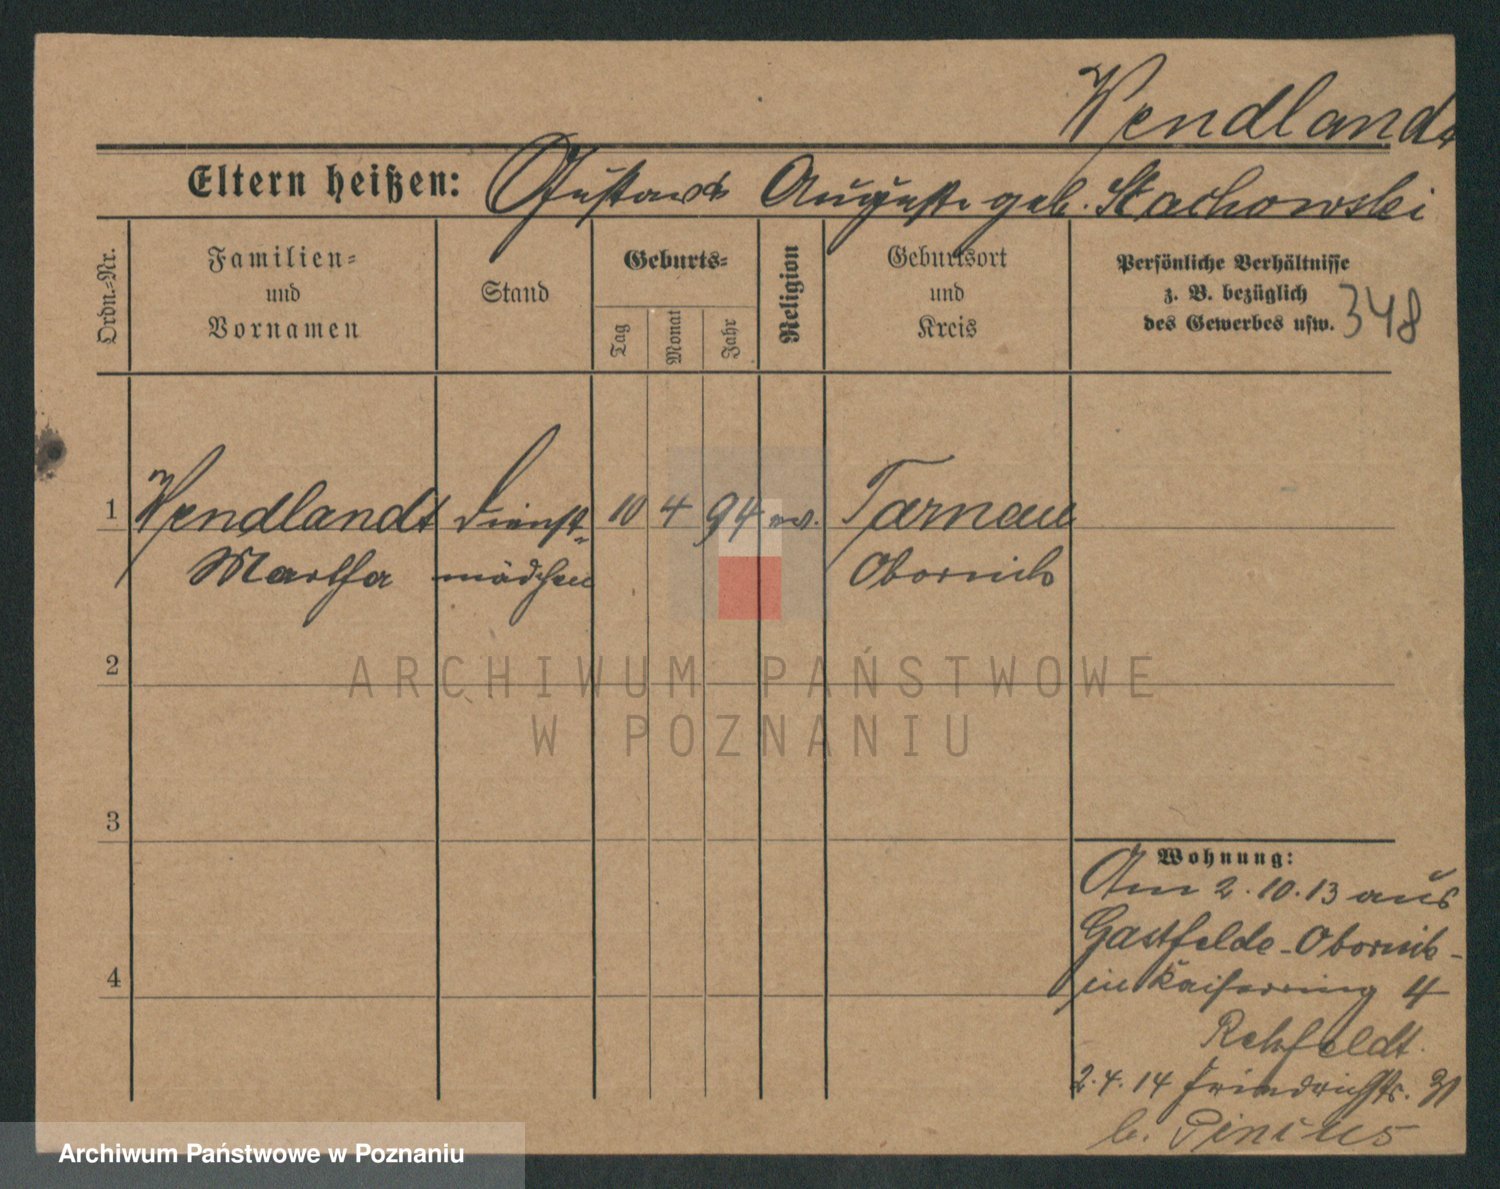 Wendland
Eltern heißen: Gustav Auguste geb. Stachowski
Ordn.-Nr.
Familien-
und
Vornamen
Stand
Geburts-
Tag
Monat
Jahr
Religion
Geburtsort
und
Kreis
Persönliche Verhältnisse
z. B. bezüglich
des Gewerbes usw.
348
1 Wendlandt Dienst- 10 4 94 ev. Tarnau
Martha mädchen Obornik
ARCHIWUM PAŃSTWOWE
W POZNANIU
2
3
4
Wohnung:
Am 2.10.13 aus
Gastfelde-Obornik-
in Kaiserring 4
Rehfeldt.
2.4.14 Friedrichstr. 31
b. Pincus
Archiwum Państwowe w Poznaniu